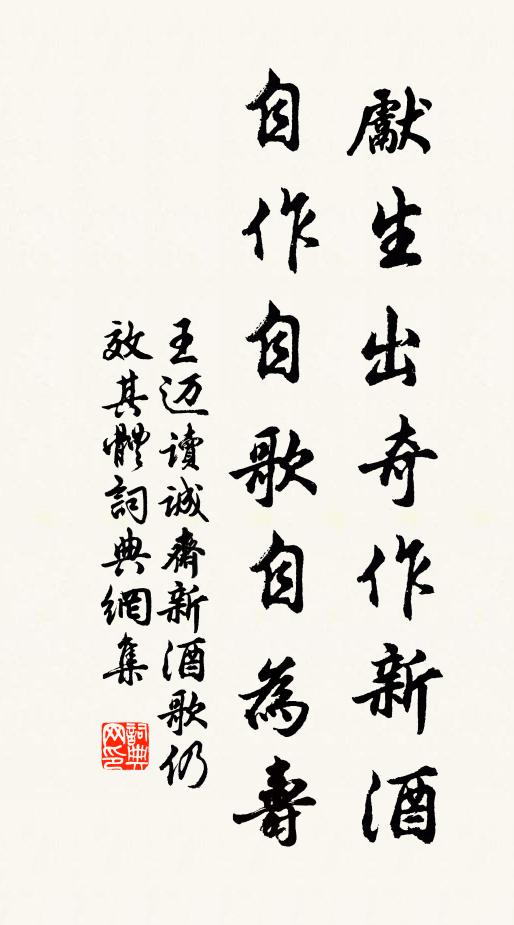 獻生出奇作新酒
自作自歌自為壽
王迈讀誠齋新酒歌仍
效其體詞典網集
詞典
网印